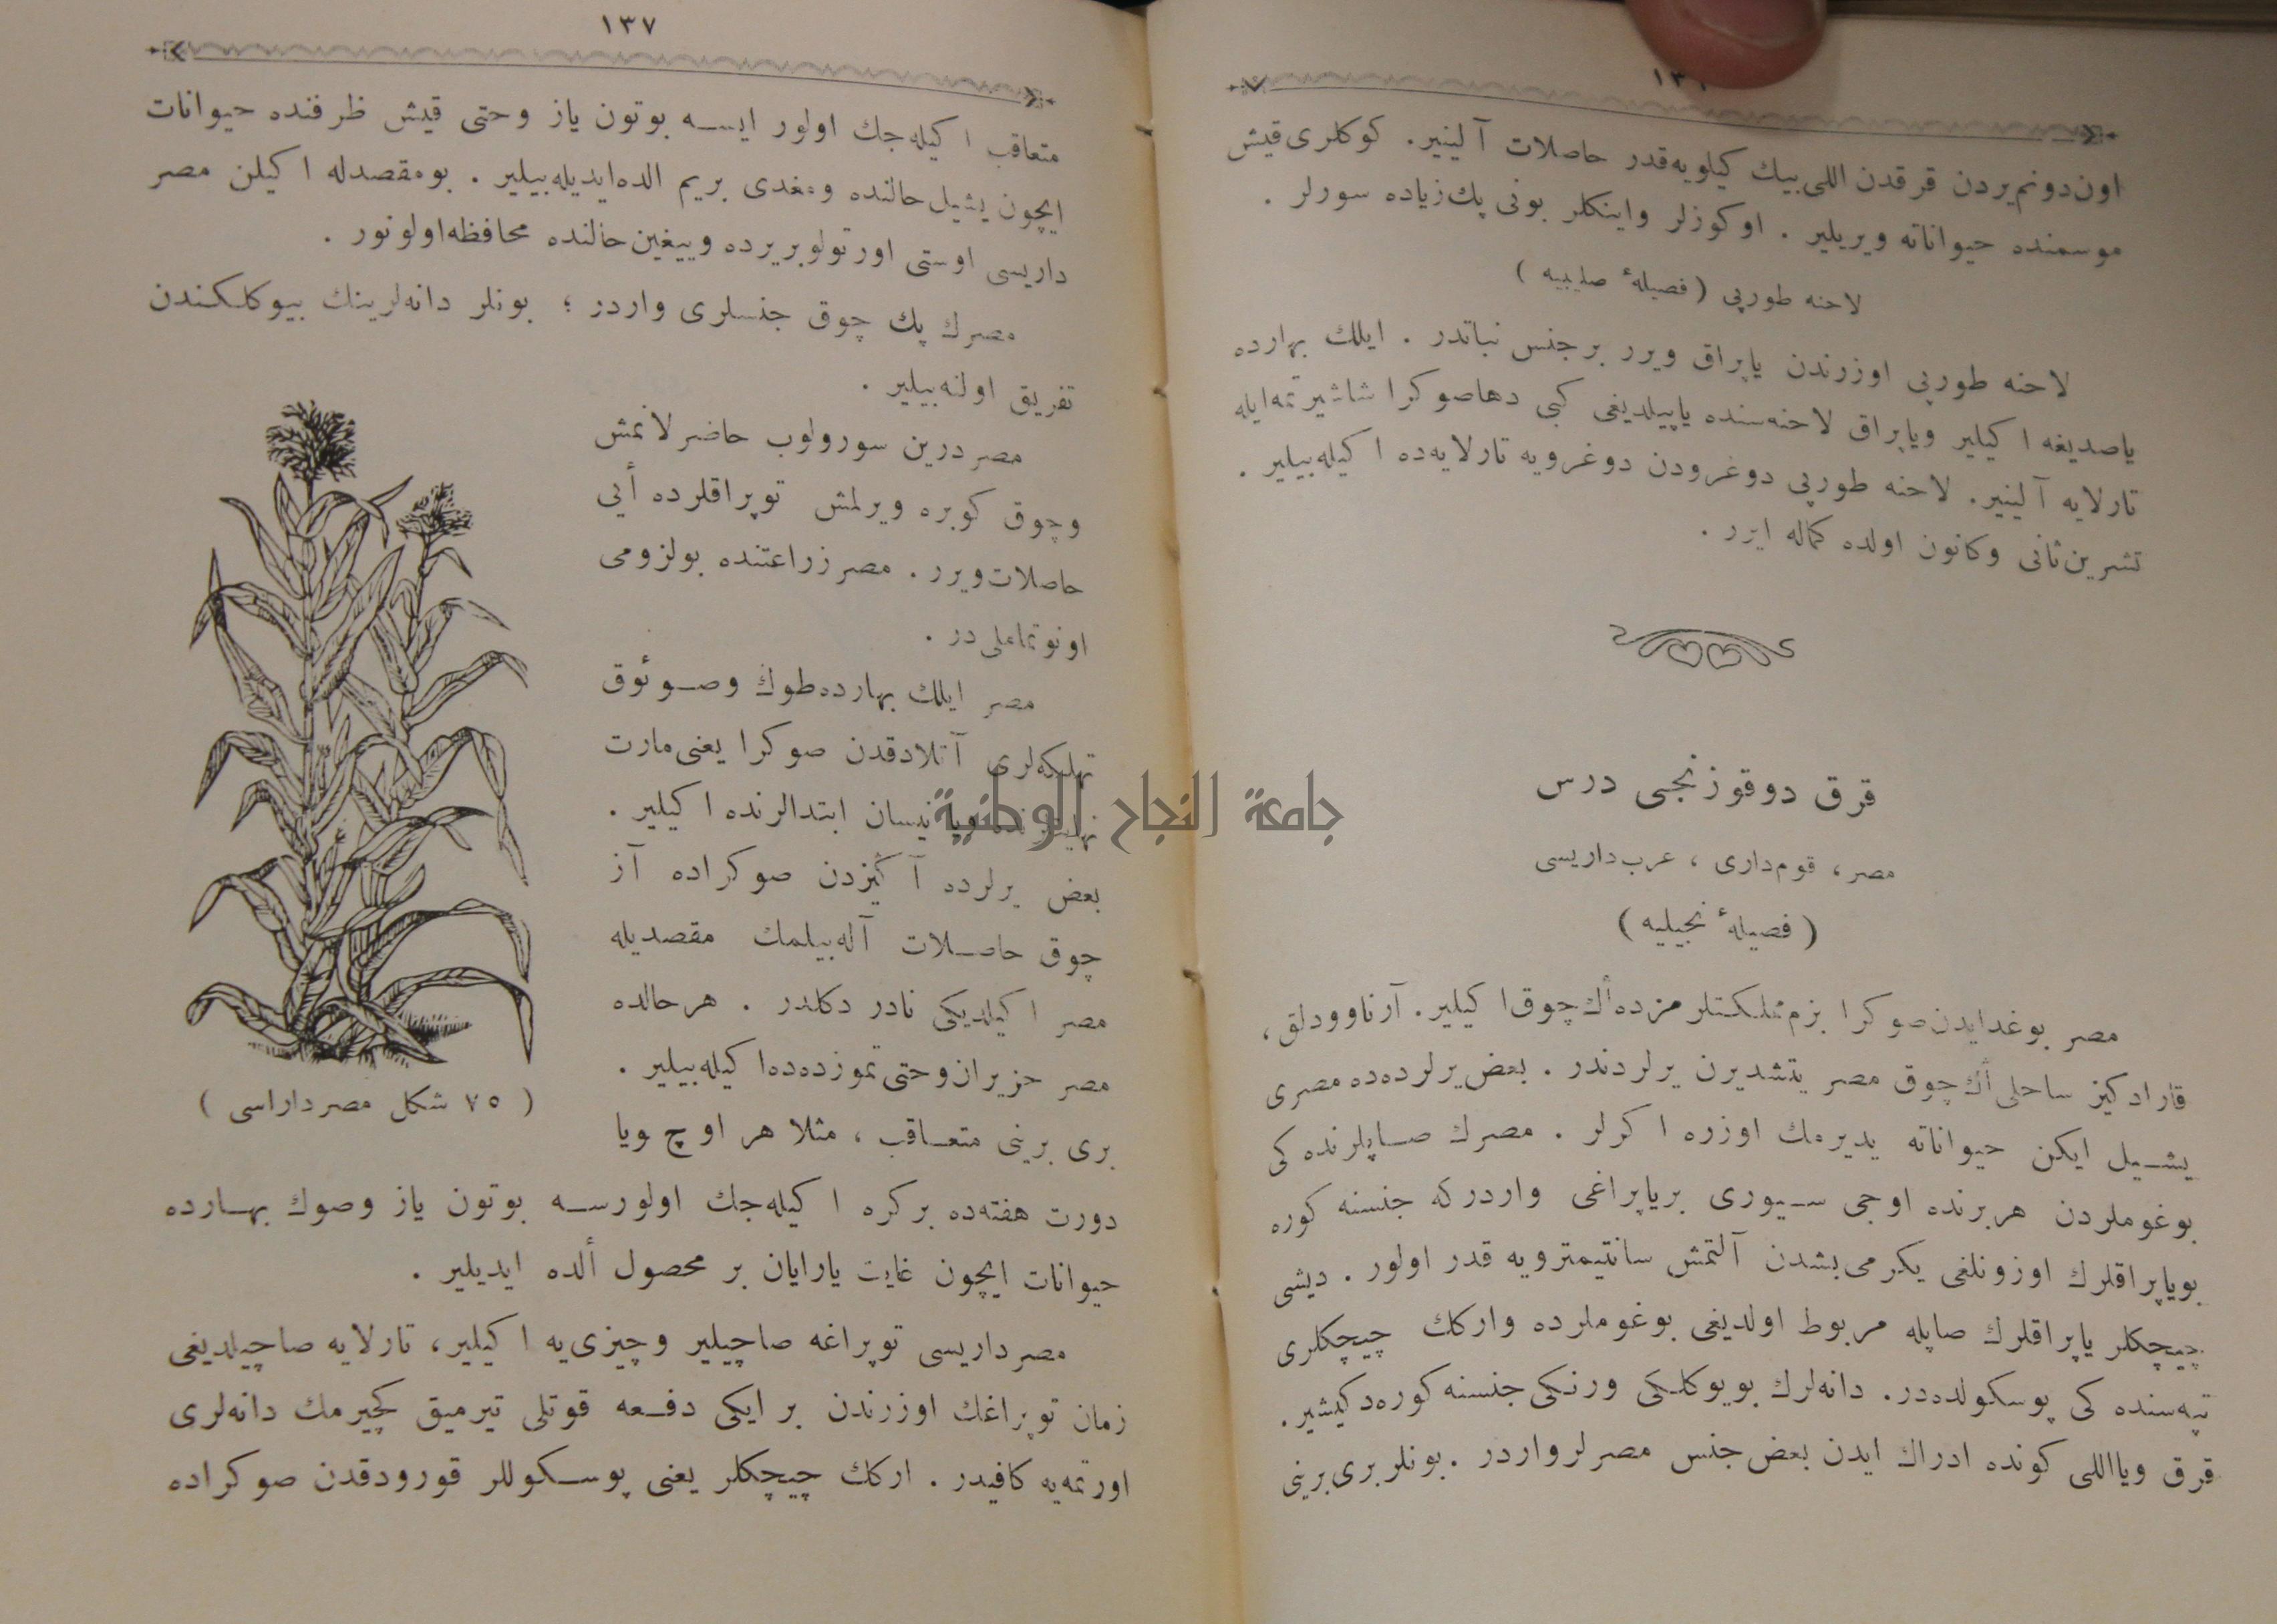 اون‌دونم‌یردن قرقدن اللی‌بیك كیلویه‌قدر حاصلات آلینیر. كوكلری‌قیش
موسمنده حیواناته ویریلیر . اوكوزلر واینكلر بونی پك‌زیاده سورلر .
لاحنه طورپی (فصیلهٔ صلیبیه)
لاحنه طورپی اوزرندن یاپراق ویرر برجنس نباتدر . ایلك بهارده
یاصدیغه اكیلیر ویاپراق لاحنه‌سنده یاپیلدیغی كبی دهاصوكرا شاشیرتمه‌ایله
تارلایه آلینیر. لاحنه طورپی دوغرودن دوغرویه تارلایه‌ده اكیله‌بیلیر .
تشرین‌ثانی وكانون اولده كماله ایرر .
قرق دوقوزنجی درس
مصر، قوم‌داری ، عرب‌داریسی
(فصیلهٔ نجیلیه)
مصر بوغدایدن‌صوكرا بزم‌مملكتلرمزده‌أك‌چوق‌اكیلیر. آرناوودلق،
قارادكیز ساحلی‌أك‌چوق مصر یتشدیرن یرلردندر . بعض‌یرلرده‌ده مصری
یشیل ایكن حیواناته یدیرمك اوزره اكرلر . مصرك صاپلرنده‌كی
بوغوملردن هربرنده اوجی سیوری بریاپراغی واردركه جنسنه كوره
بویاپراقلرك اوزونلغی یكرمی‌بشدن آلتمش سانتیمترویه قدر اولور . دیشی
چیچكلر یاپراقلرك صاپله مربوط اولدیغی بوغوملرده واركك چیچكلری
تپه‌سنده‌كی پوسكولده‌در. دانه‌لرك بویوكلكی ورنكی‌جنسنه‌كوره‌دكیشیر.
قرق ویااللی كونده ادراك ایدن بعض‌جنس مصرلرواردر .بونلربری‌برینی
١٣٧
متعاقب اكیله‌جك اولور ایسه بوتون یاز وحتی قیش ظرفنده حیوانات
ایچون یشیل‌حالنده ومغدی بریم الده‌ایدیله‌بیلیر . بومقصدله اكیلن مصر
داریسی اوستی اورتولوبریرده وییغین‌حالنده محافظه‌اولونور .
مصرك پك چوق جنسلری واردر ؛ بونلر دانه‌لرینك بیوكلكندن
تفریق اولنه‌بیلیر .
مصر درین سورولوب حاضرلانمش
وچوق كوبره ویرلمش توپراقلرده أیی
حاصلات‌ویرر . مصرزراعتنده بولزومی
اونوتماملی‌در .
مصر ایلك بهارده‌طوك وصوئوق
تهلیكه‌لری آتلادقدن صوكرا یعنی‌مارت
نیسان ابتدالرنده اكیلیر .
بعض یرلرده آكیزدن صوكراده آز
چوق حاصلات آله‌بیلمك مقصدیله
مصر اكیلدیكی نادر دكلدر . هرحالده
مصر حزیران‌وحتی‌تموزده‌ده‌اكیله‌بیلیر .
بری برینی متعاقب ، مثلا هر اوچ ویا
(٧٥ شكل مصرداراسی)
دورت هفته‌ده بركره اكیله‌جك اولورسه بوتون یاز وصوك بهارده
حیوانات ایچون غایت یارایان بر محصول ألده ایدیلیر .
مصرداریسی توپراغه صاچیلیر وچیزی‌یه اكیلیر، تارلایه صاچیلدیغی
زمان توپراغك اوزرندن بر ایكی دفعه قوتلی تیرمیق كچیرمك دانه‌لری
اورتمه‌یه كافیدر . اركك چیچكلر یعنی پوسكوللر قورودقدن صوكراده
جامعة النجاح الوطنية